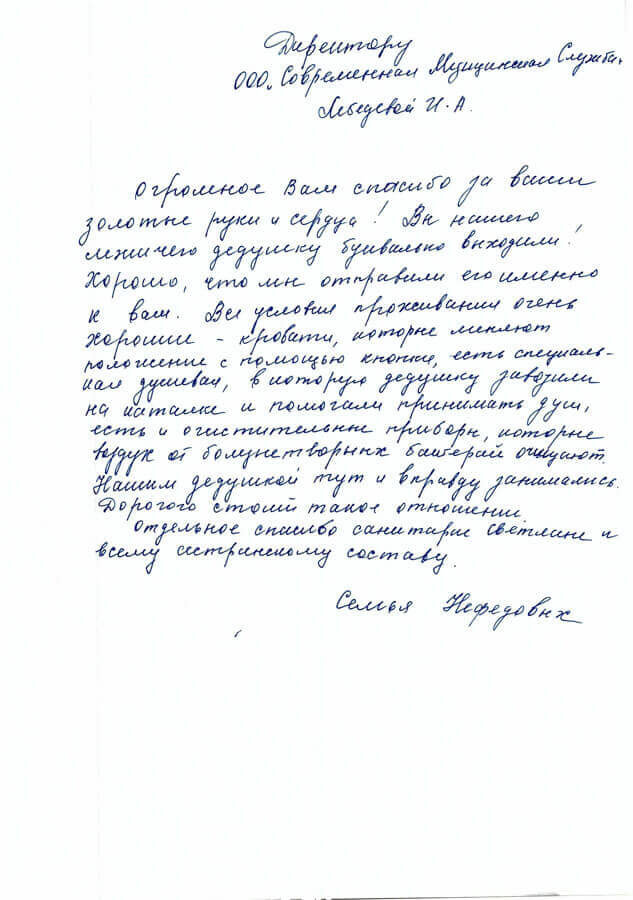 Директору
ООО "Современная Медицинская Служба"
Лебедевой И.А.
Огромное Вам спасибо за ваши
золотые руки и сердца! Вы нашего
лежачего дедушку буквально выходили!
Хорошо, что мы отправили его именно
к вам. Все условия проживания очень
хорошие - кровати, которые меняют
положение с помощью кнопки, есть специаль-
ная душевая, в которую дедушку завозили
на каталке и помогали принимать душ,
есть и очистительные приборы, которые
воздух от болезнетворных бактерий очищают.
Нашим дедушкой тут и вправду занимались.
Дорогого стоит такое отношение.
Отдельное спасибо санитарке Светлане и
всему сестринскому составу.
Семья Нефедовых